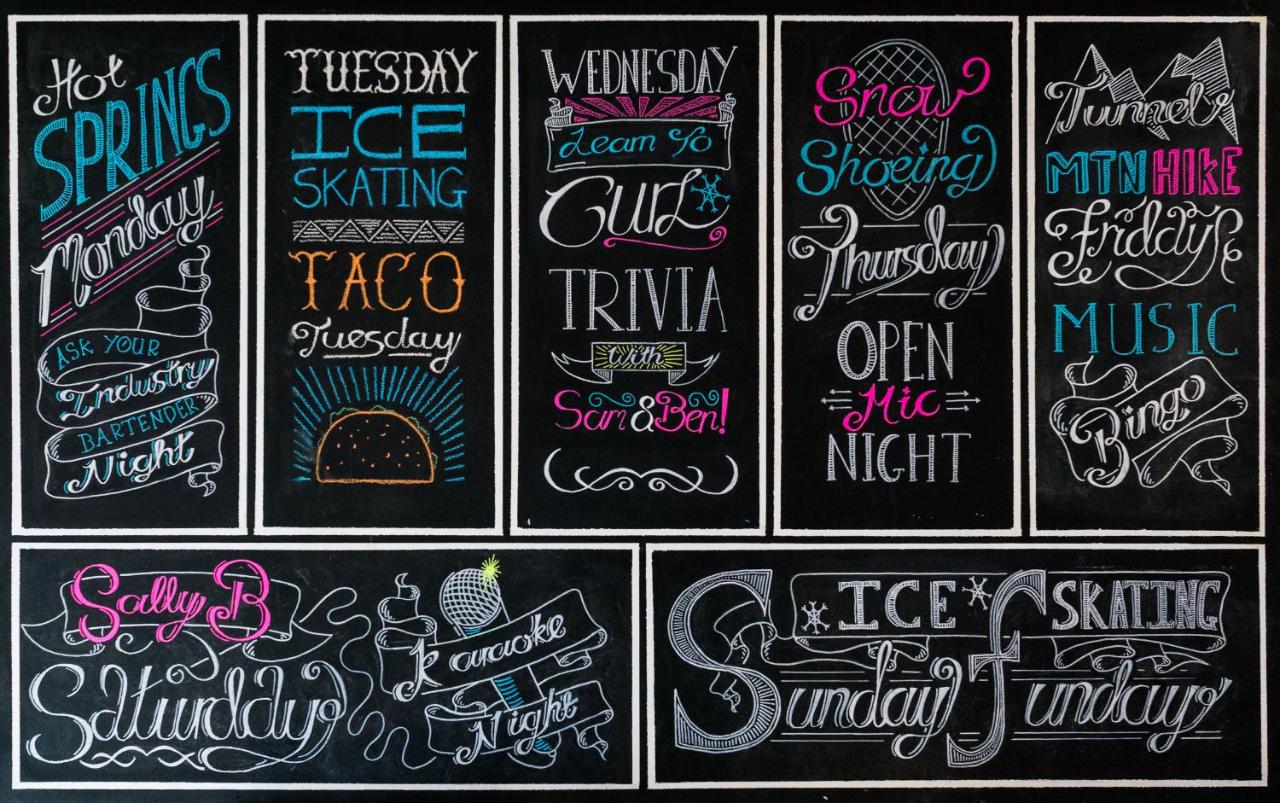 Hot
SPRINGS
Monday
ASK YOUR
Industry
BARTENDER
Night
TUESDAY
ICE
SKATING
TACO
Tuesday
WEDNESDAY
Learn To
Curl
TRIVIA
with
Sam & Ben!
Snow
Shoeing
Thursday
OPEN
Mic
NIGHT
Tunnel
MTN HIKE
Friday
MUSIC
Bingo
Sally B
Saturday
Karaoke
Night
ICE SKATING
Sunday Funday